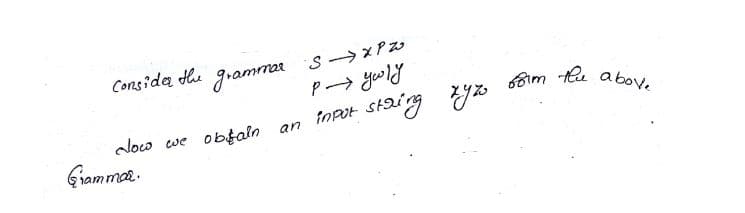 Consider the grammar S → xPz
P → yw|y
Now we obtain an input string xyz from the above
Grammar.